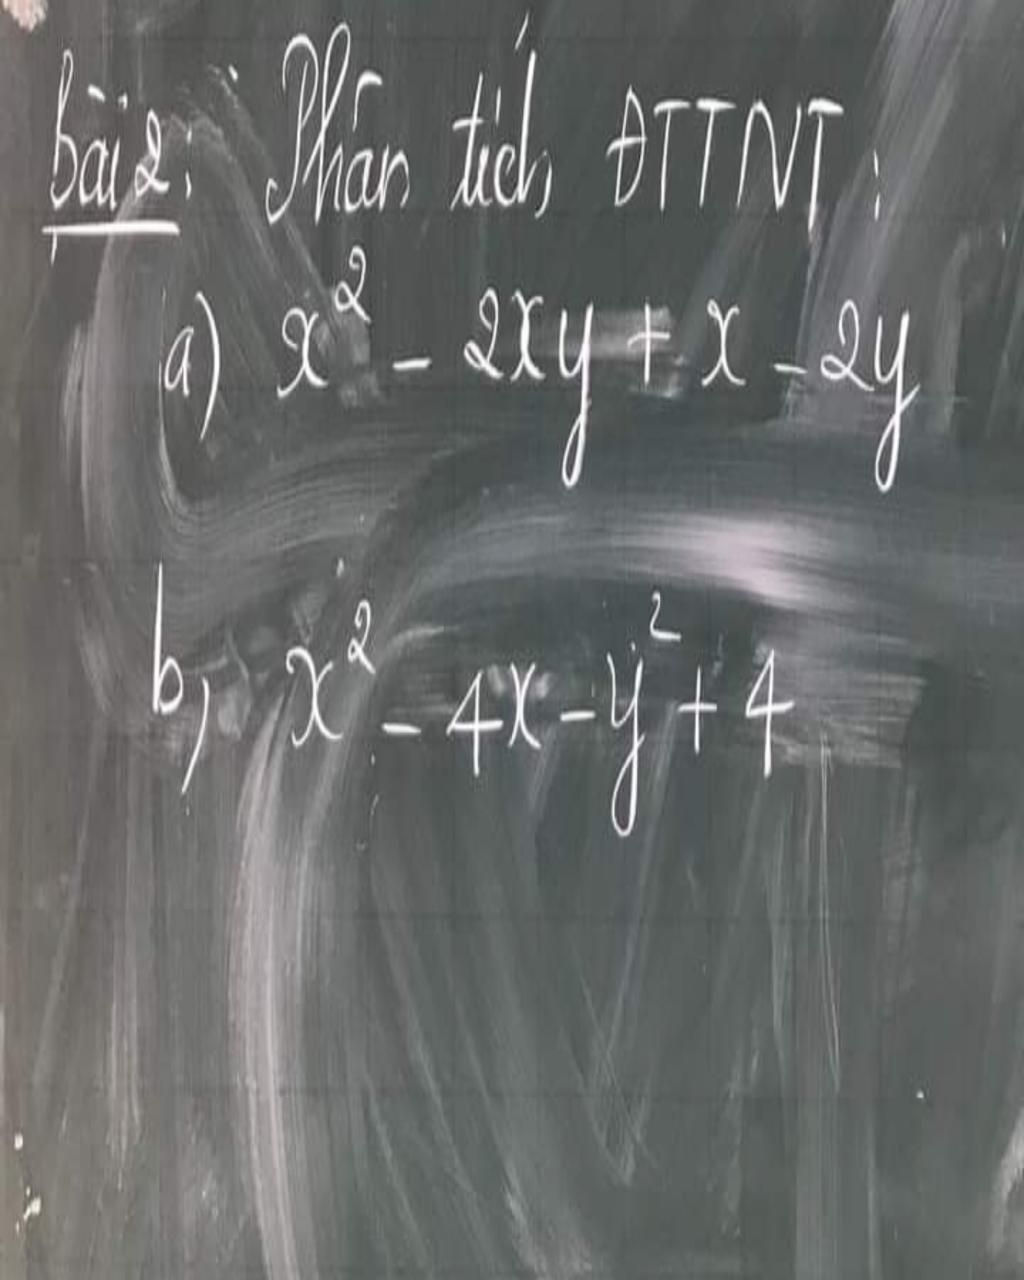 Bài 2: Phân tích ĐTTNT:
a) x² - 2xy + x - 2y
b, x² - 4x - y² + 4